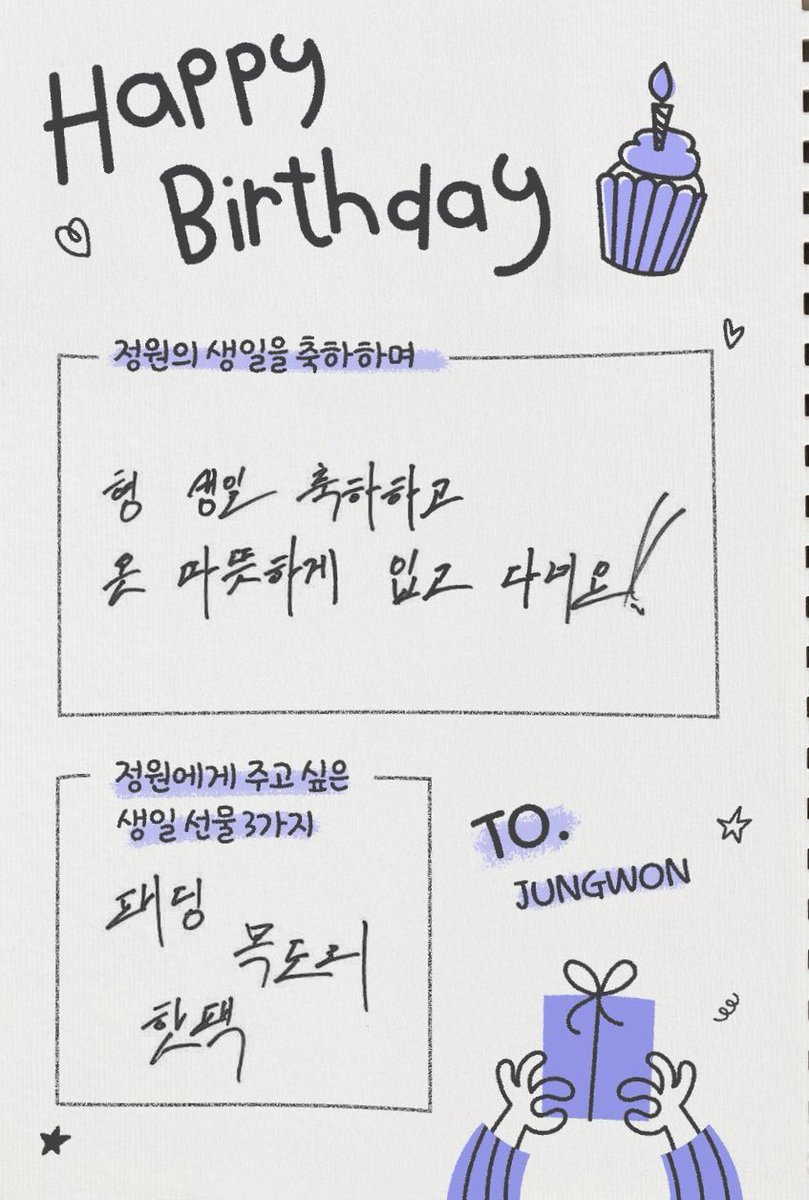 Happy
Birthday
정원의 생일을 축하하며
형 생일 축하하고
옷 따뜻하게 입고 다녀요!!
정원에게 주고 싶은
생일 선물 3가지
패딩
목도리
핫팩
TO.
JUNGWON